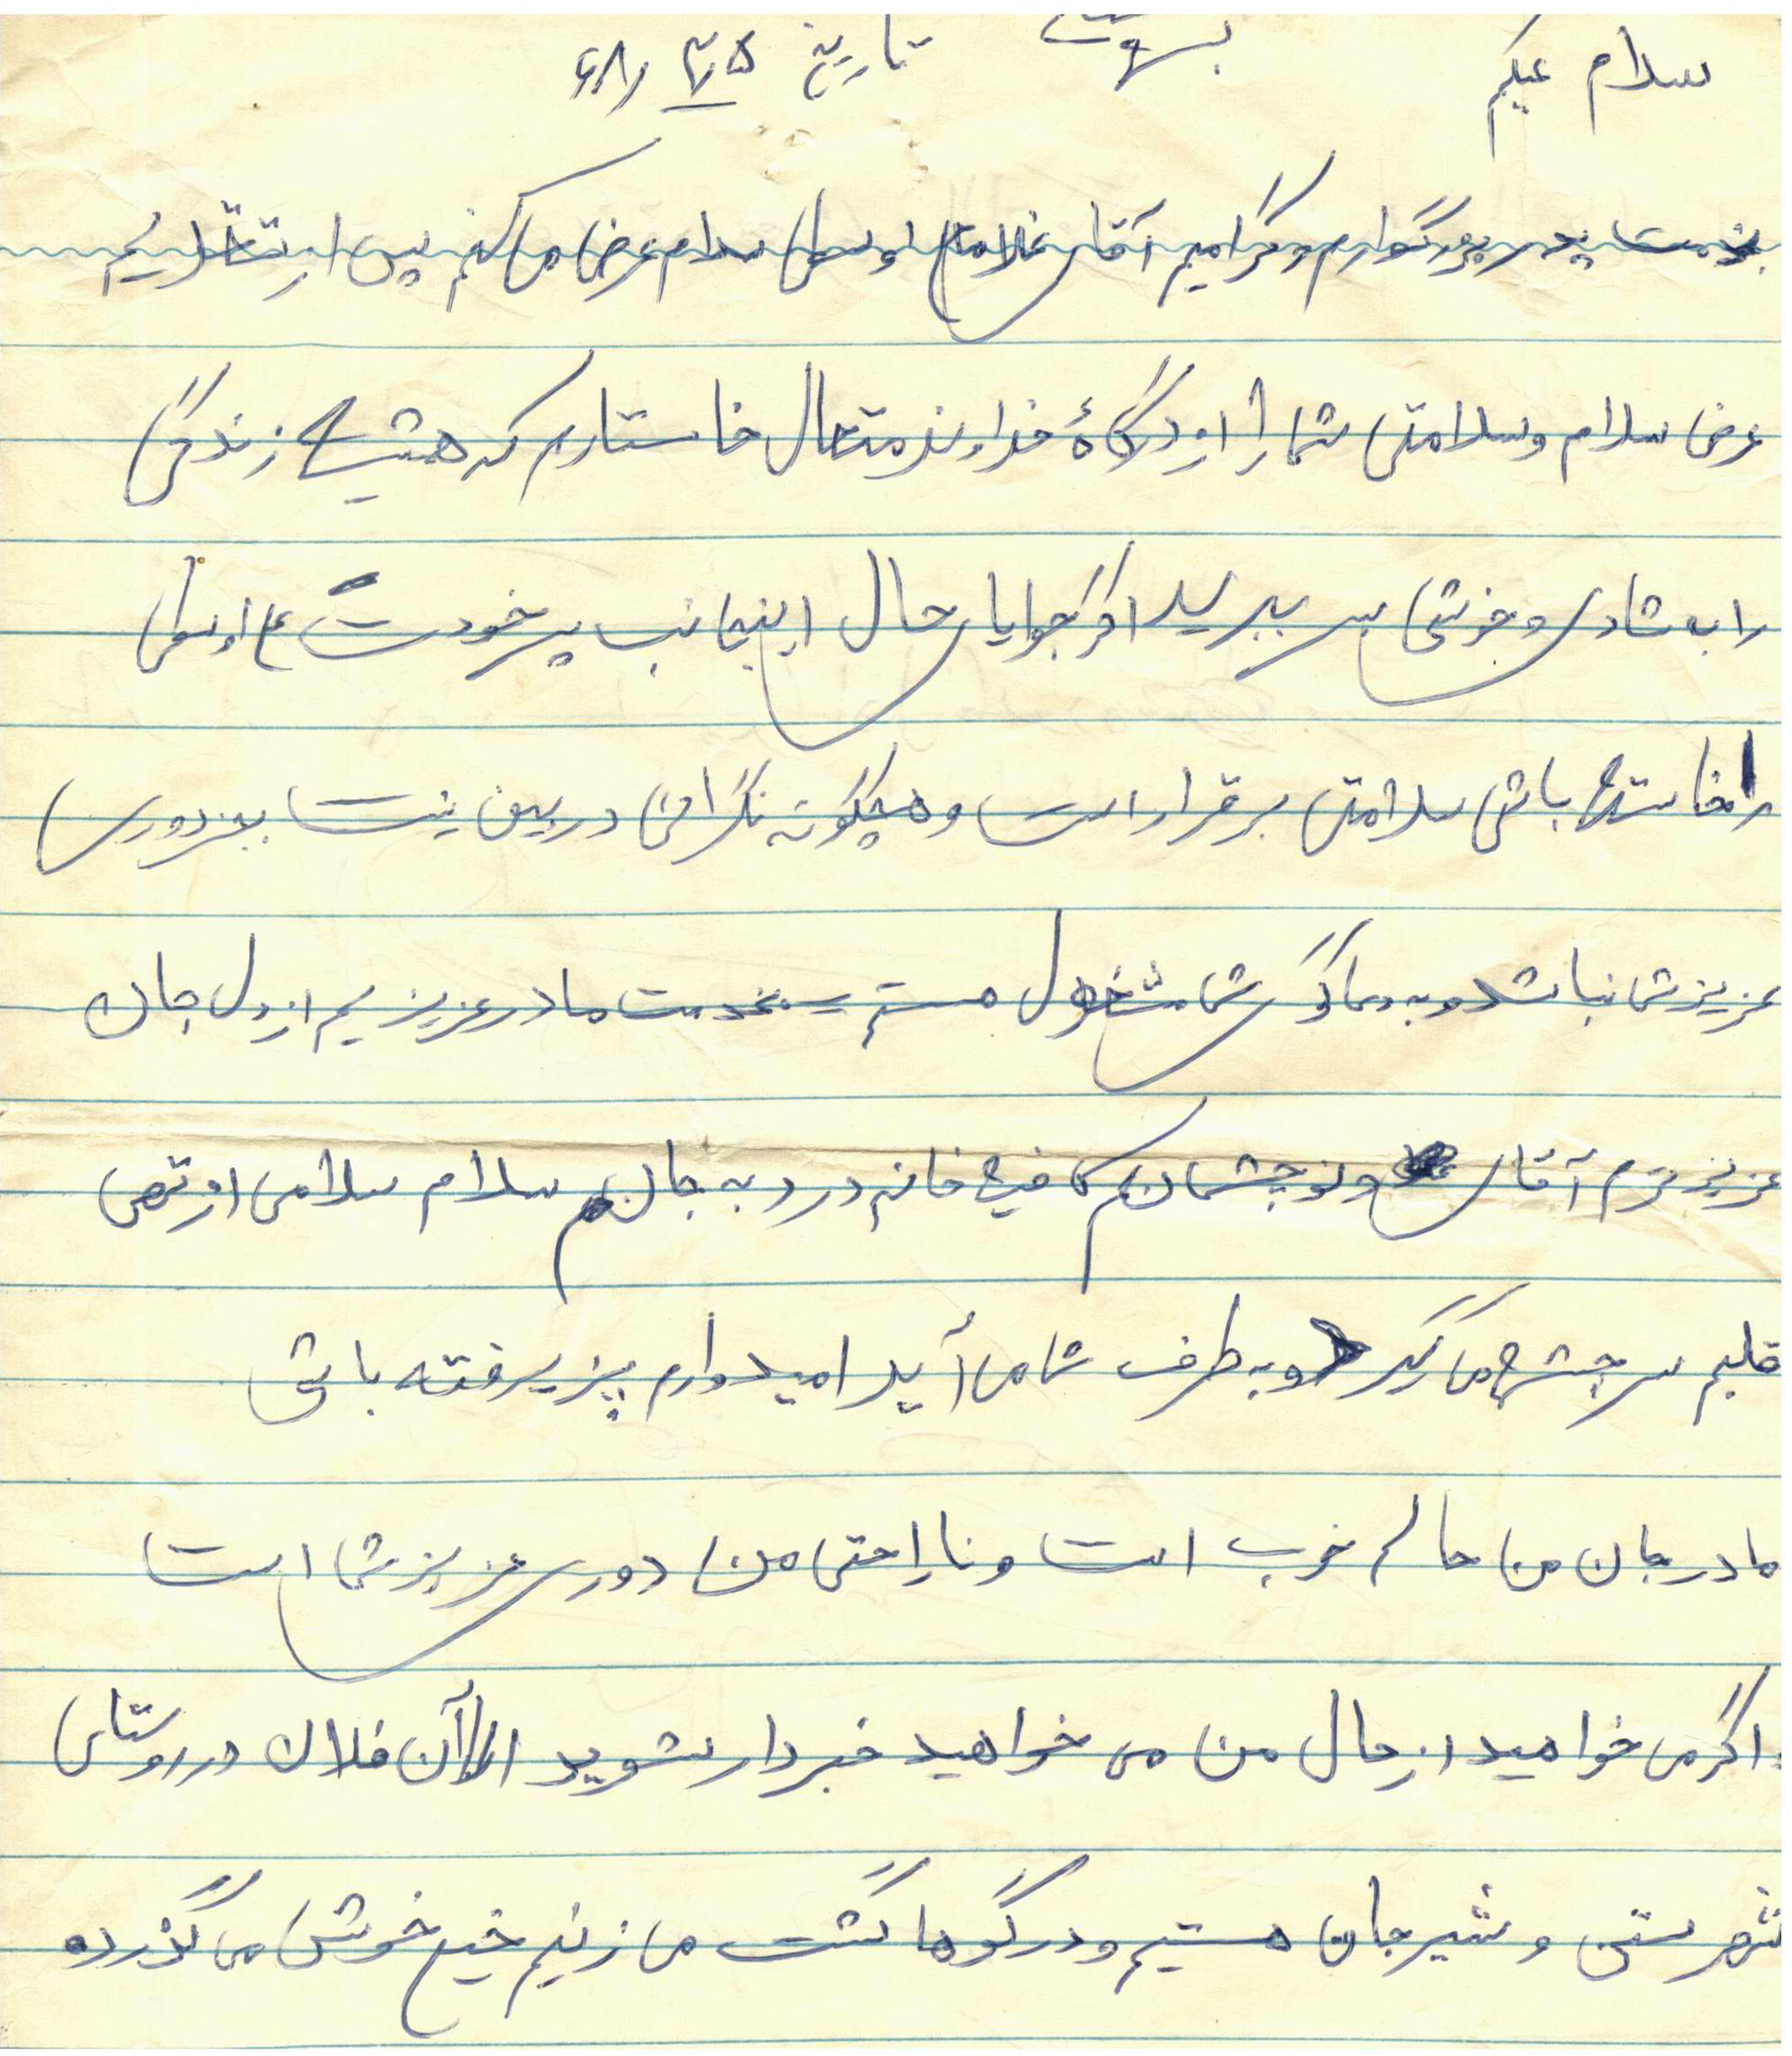 سلام عیکم تاریخ ۶۸/۳/۵
بخدمت پدر بزرگوارم و گرامیم آقای غلامعلی اوسطی سلام عرض می کنم پس از تقدیم
عرض سلام و سلامتی شما را از درگاهٔ خداوند متعال خاستارم که همیشه زندگی
را به شادی و خوشی بسر ببرید اگر جوایای حال اینجانب پسر خودت ع اوسطی
را خاسته باشی سلامتی برقرار است و هیچگونه نگرانی در بین نیست بجز دوری
عزیز شما نباشد و به دعاگوی شما مشغول هستم بخدمت مادر عزیزیم از دل جان
عزیز ترم آقای و نو چشمانم خانم درد به جانم سلام سلامی از تهی
قلبم سر چشمه می گیرد و به طرف شما می آید امیدوارم پزیرفته باشی
مادر جان من حالم خوب است و ناراحتی من دوری عزیز شما است
اگر می خواهید از حال من می خواهید خبردار شوید الاآن فلان در روستای
شهرستی و شیرجان هستیم و در کوها گشت می زنیم خیلی خوش می گذرد